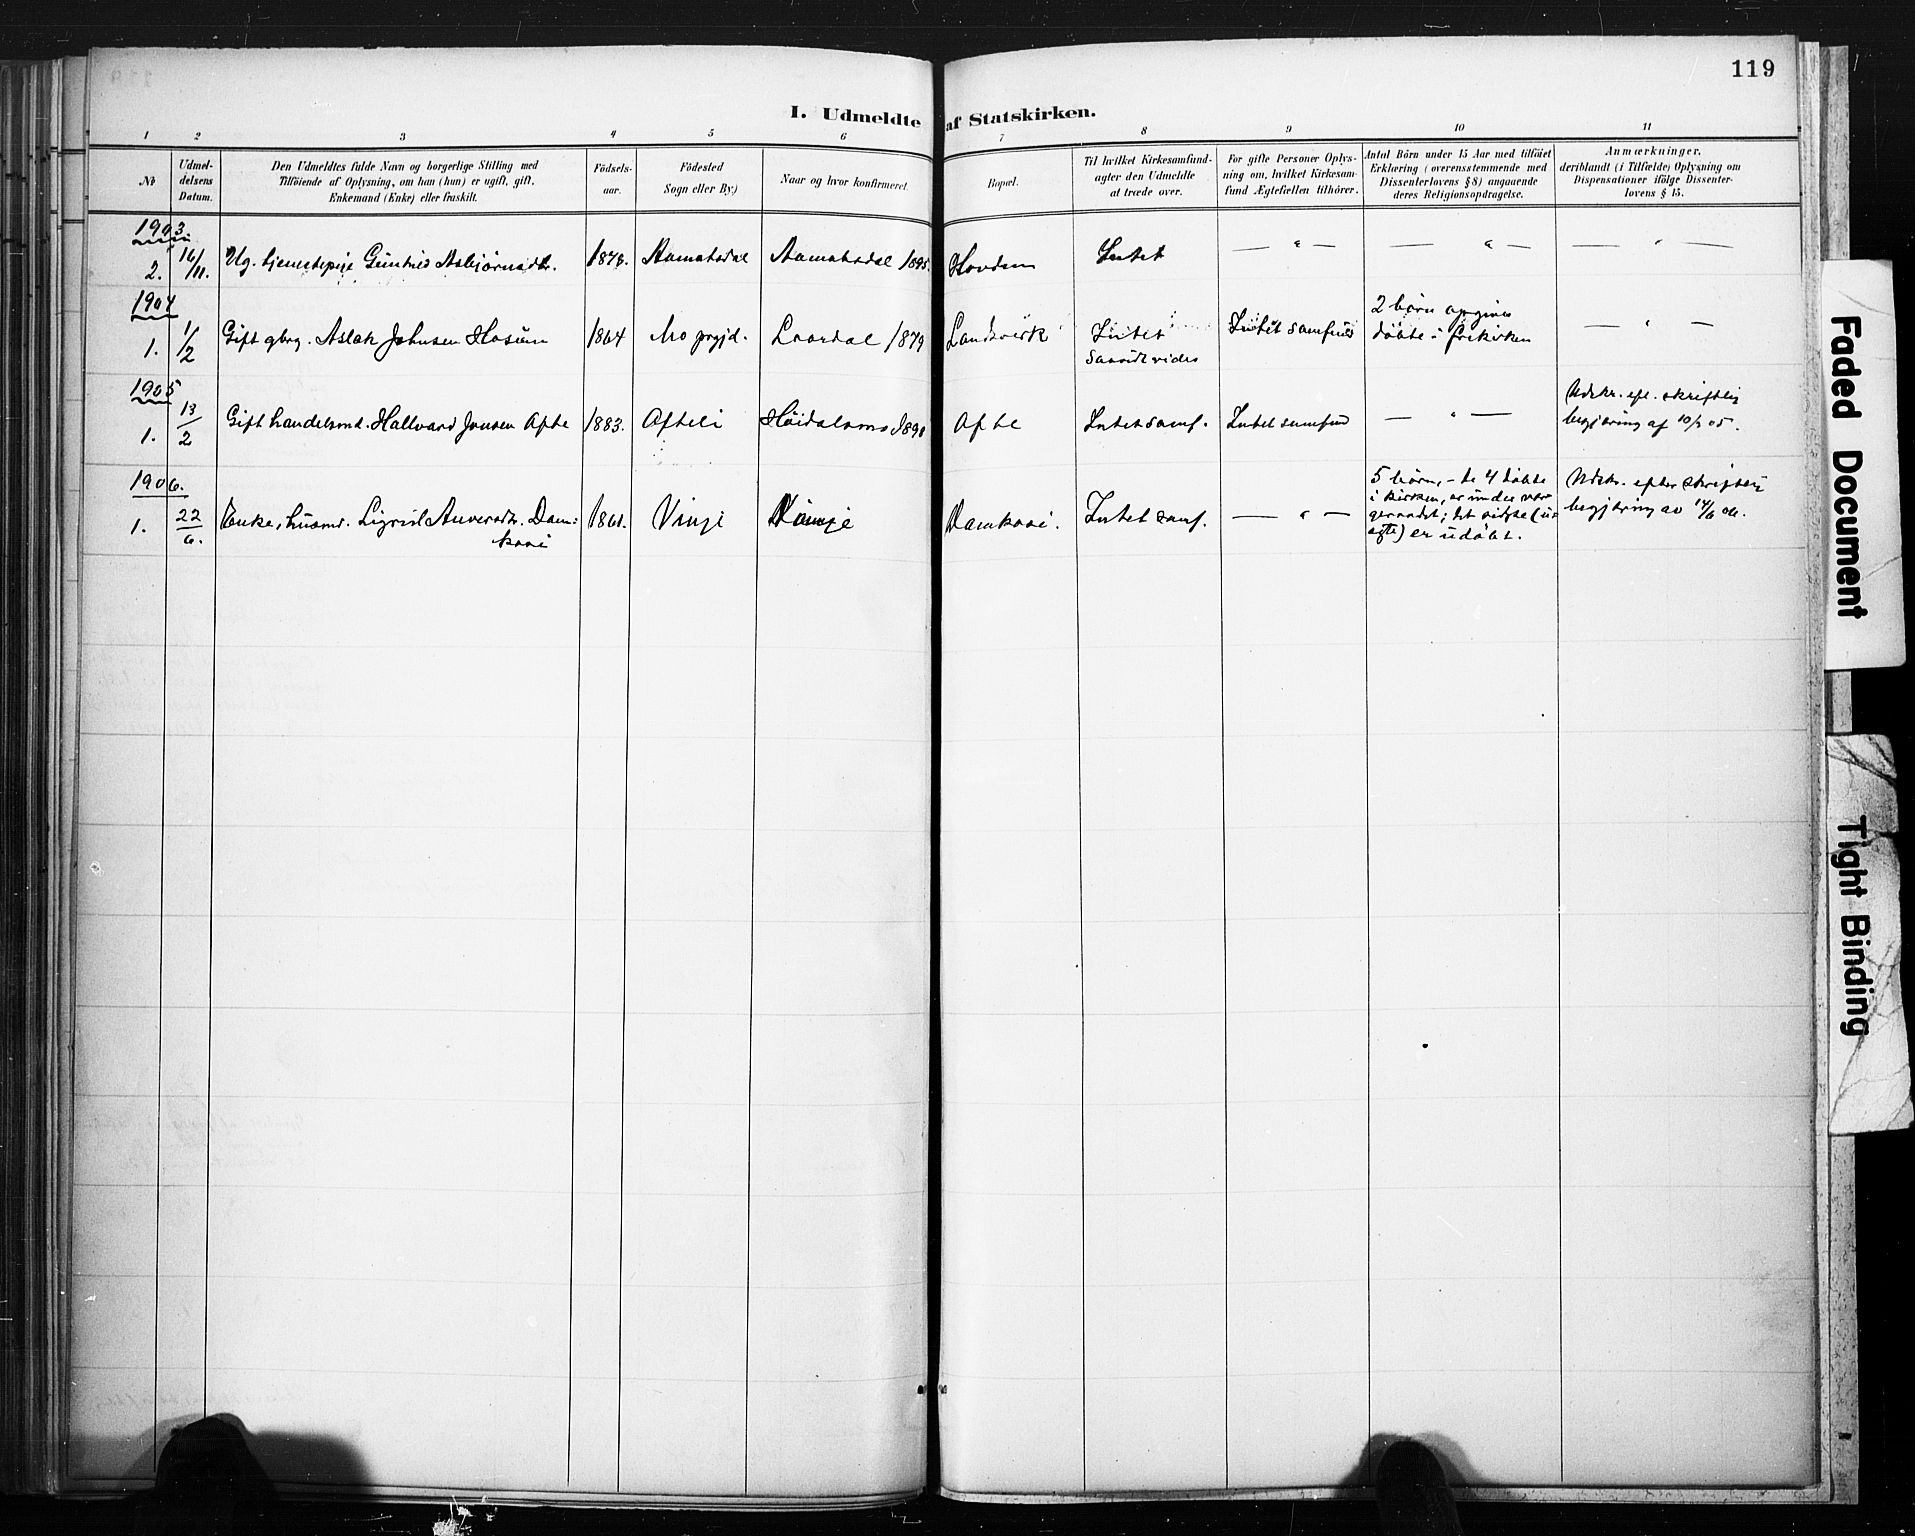 119
I. Udmeldte af Statskirken.
1 2 3 4 5 6 7 8 9 10 11
No
Udmeldelsens Datum.
Den Udmeldtes fulde Navn og borgerlige Stilling med
Tilföiende af Oplysning, om han (hun) er ugift, gift,
Enkemand (Enke) eller fraskilt.
Födsels-
aar.
Födested
Sogn eller By.)
Naar og hvor konfirmeret.
Bopæl.
Til hvilket Kirkesamfund
agter den Udmeldte
at træde over.
For gifte Personer Oplys-
ning om, hvilket Kirkesam-
fund Ægtefællen tilhörer.
Antal Börn under 15 Aar med tilföiet
Erklæring (overensstemmende med
Dissenterlovens § 8) angaaende
deres Religionsopdragelse.
Anmærkninger,
deriblandt (i Tilfælde) Oplysning om
Dispensationer ifölge Dissenter-
lovens § 15.
1903
2. 16/11. Ug. tjenestepige Gunhild Asbjørnsdtr. 1878. Aamotsdal Aamotsdal 1895. Hovdem Intet — " — — " — — " —
1904
1. 1/2 Gift gbrg. Aslak Johnsen Hasum 1864 Mo prgjd. Laardal 1879 Landsverk Intet
saavidt vides
Intet samfund
2 børn opgives
døbte i frikirken
— " —
1905
1. 13/2 Gift handelsmd. Hallvard Jonsen Ofte 1883. Ofteli Høidalsmo 1890 Ofte Intet samf. Intet samfund — " —
Udskr. eft. skriftlig
begjæring af 10/2 05.
1906.
1. 22/6. Enke, husmd. Sigrid Anversdtr. Dam-
kaasi
1861. Vinje Vinje Damkaasi. Intet samf. — " —
5 børn, - de 4 døbte
i kirken,
det sidste (u-
ægte) er udøbt.
Udskr. efter skriftlig
begjæring av 14/6 06.
Faded Document
Tight Binding